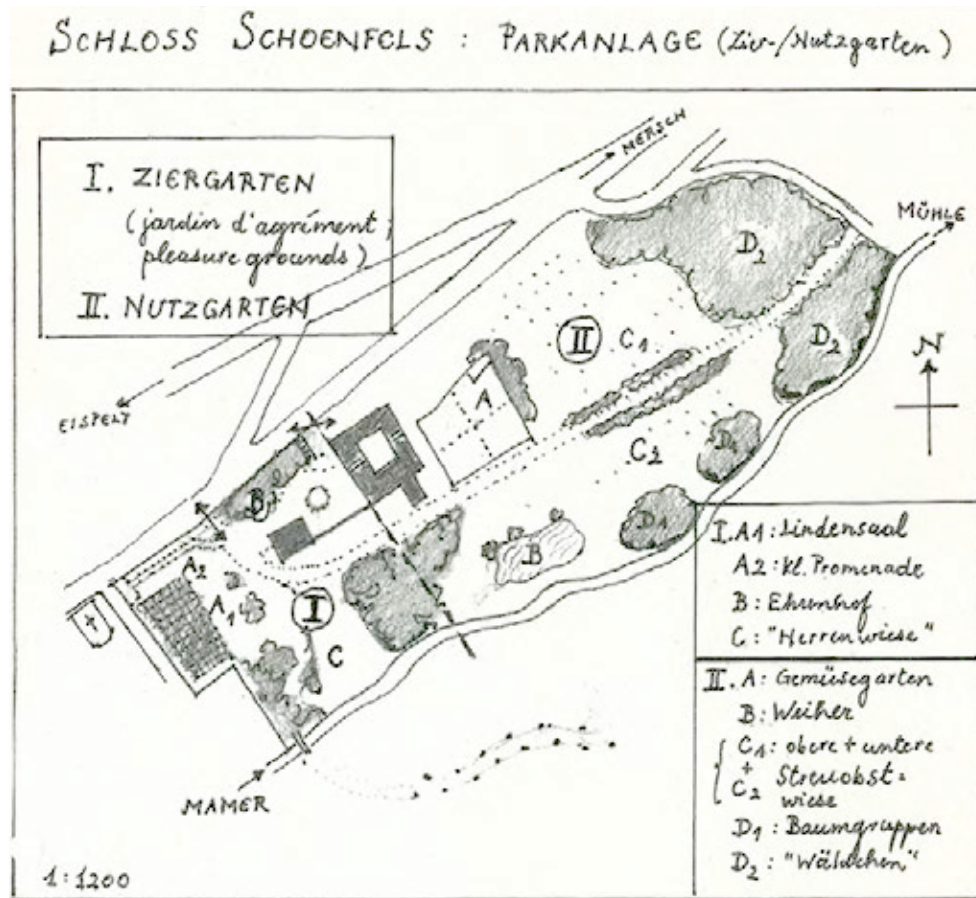 SCHLOSS SCHOENFELS : PARKANLAGE (Zier-/Nutzgarten)
I. ZIERGARTEN
(jardin d'agrément,
pleasure grounds)
II. NUTZGARTEN
MERSCH
MÜHLE
D2
D2
II
C1
A
N
EISPELT
C2
D1
B
D1
B
A2
A1
I
C
MAMER
I. A1: Lindensaal
A2: Kl. Promenade
B: Ehrenhof
C: "Herrenwiese"
II. A: Gemüsegarten
B: Weiher
C1: obere + untere
+
C2 Streuobst=
wiese
D1: Baumgruppen
D2: "Wäldchen"
1:1200